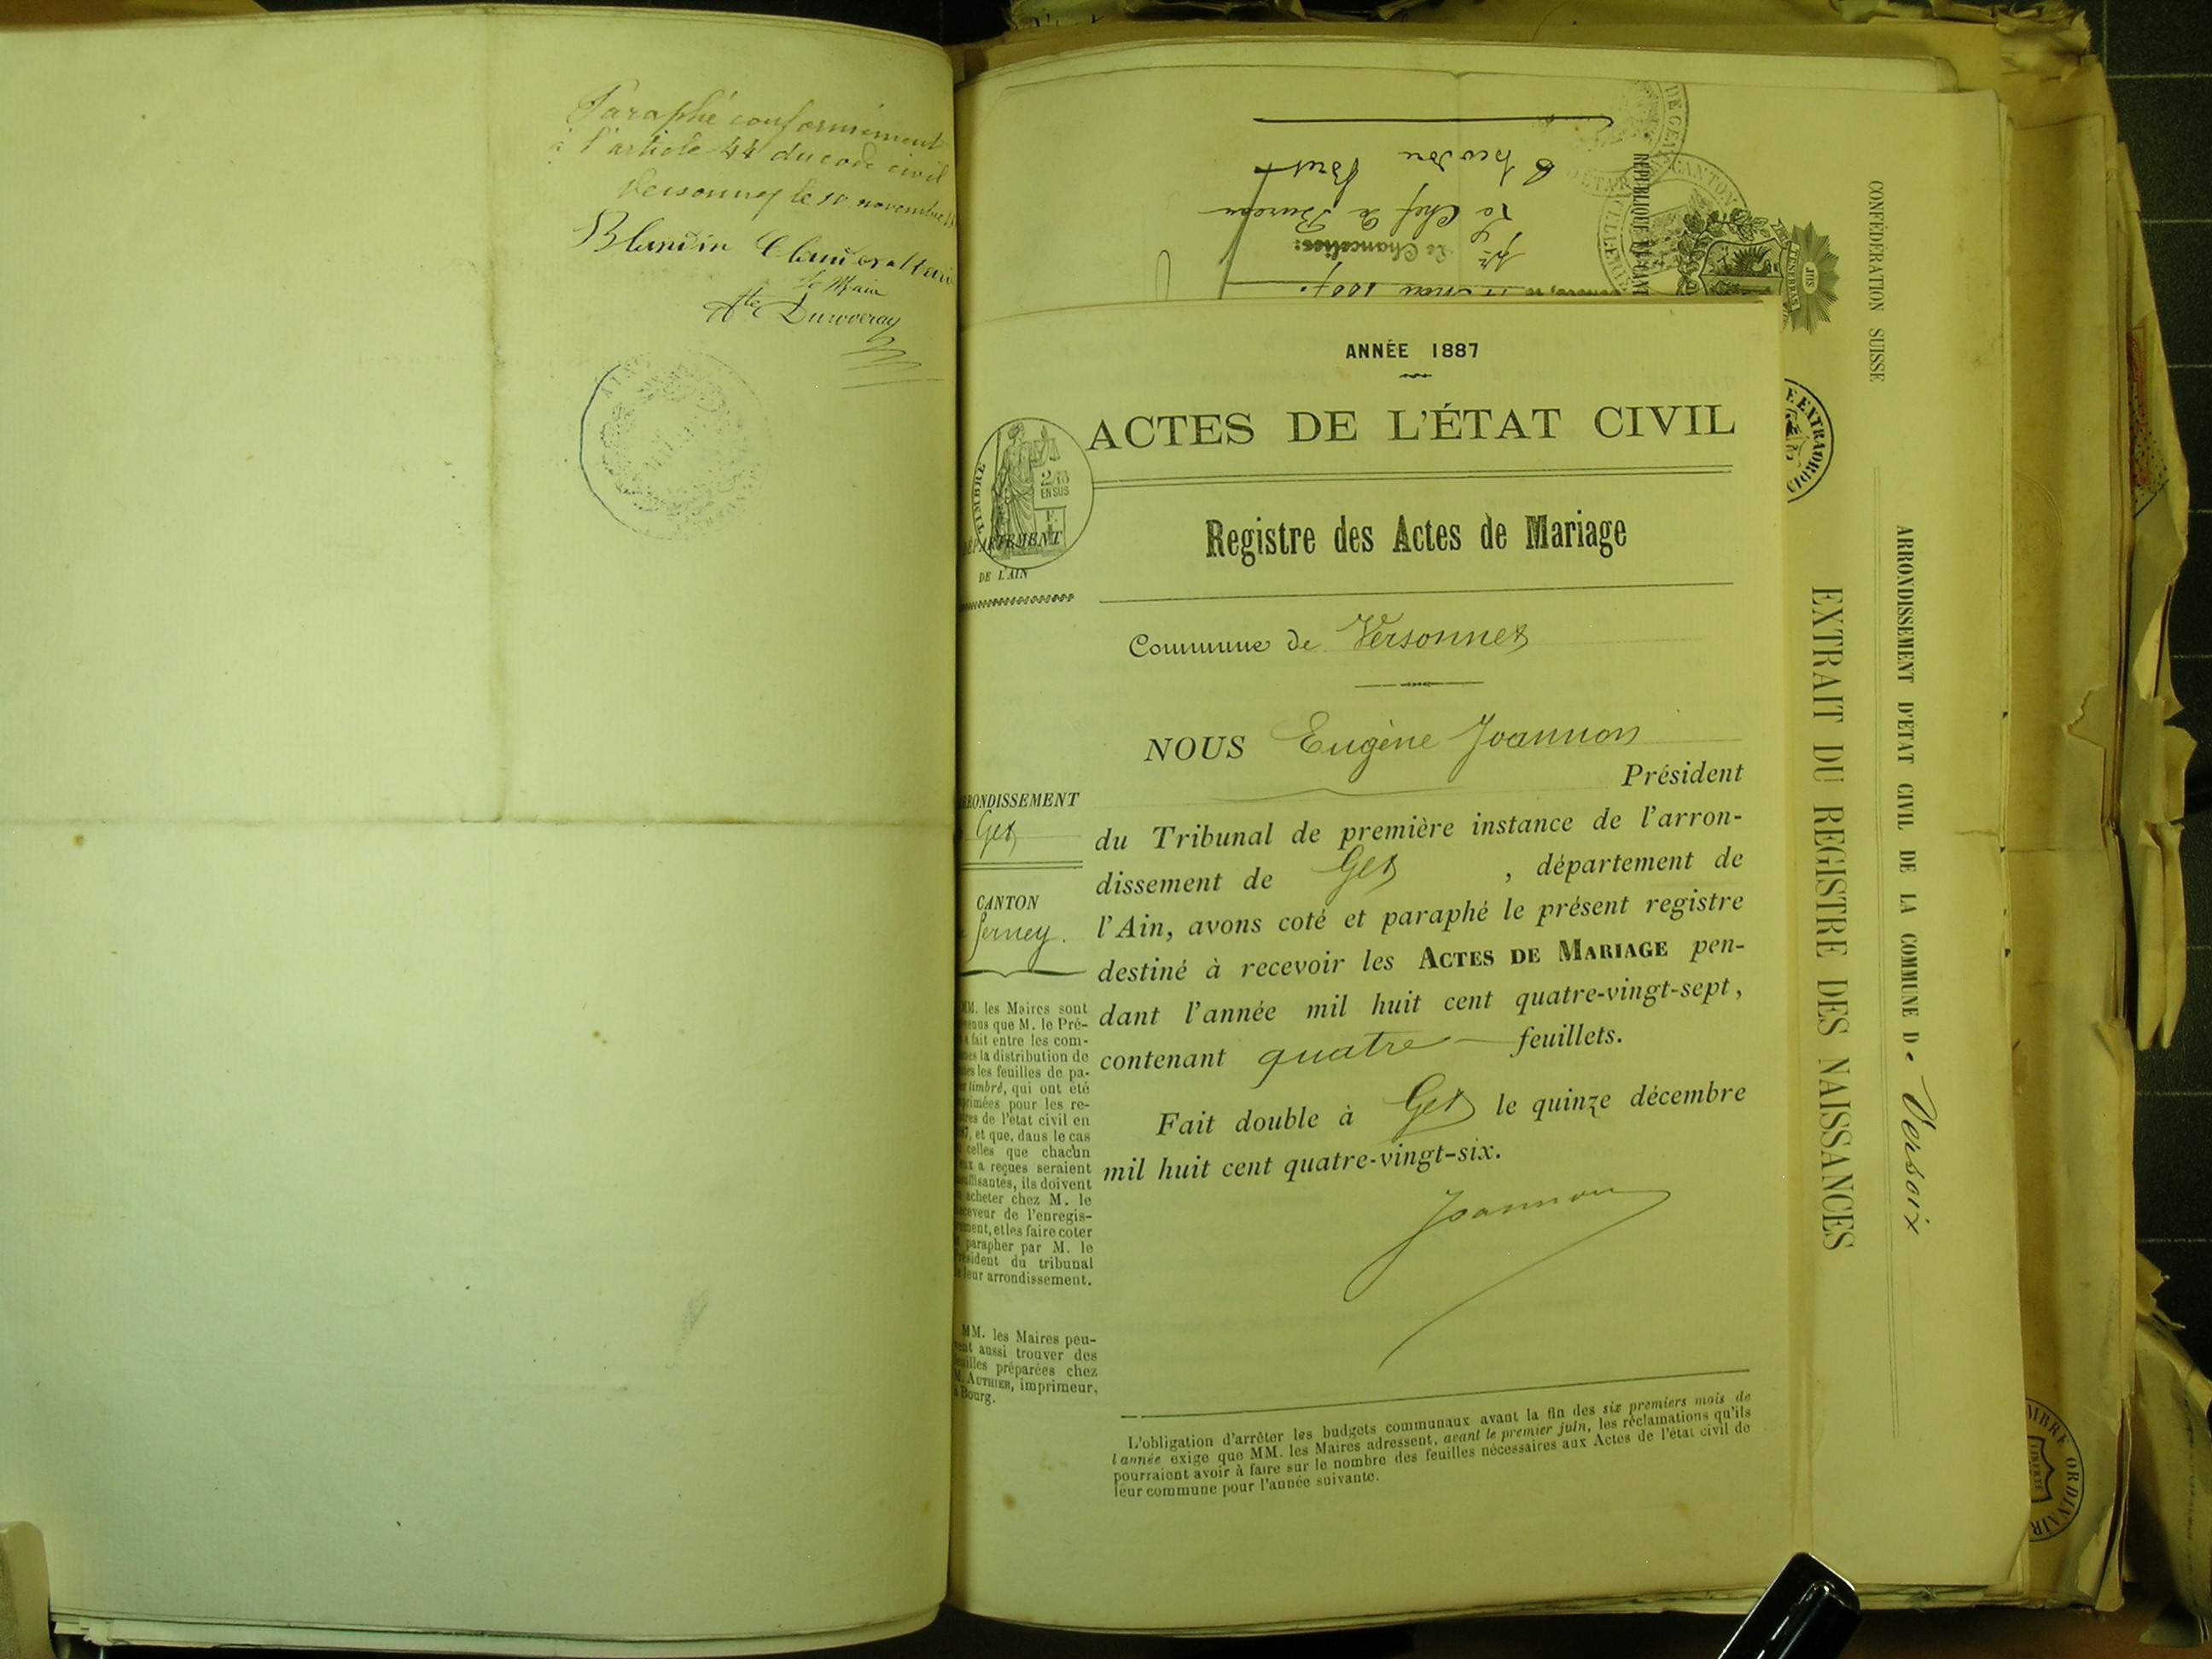 Paraphé conformément
à l'article 44 du code civil
Versonnex le 10 novembre
Blandin Claude
le Maire
Duroveray
Théodore Bret
Le Chef de Bureau
Le Chancelier:
CONFÉDÉRATION SUISSE
ARRONDISSEMENT D'ÉTAT CIVIL DE LA COMMUNE De Versoix
EXTRAIT DU REGISTRE DES NAISSANCES
ANNÉE 1887
ACTES DE L'ÉTAT CIVIL
TIMBRE
2/10
EN SUS
DÉPARTEMENT
DE L'AIN
Registre des Actes de Mariage
Commune de Versonnex
NOUS Eugène Joannon
Président
du Tribunal de première instance de l'arron-
dissement de Gex , département de
l'Ain, avons coté et paraphé le présent registre
destiné à recevoir les ACTES DE MARIAGE pen-
dant l'année mil huit cent quatre-vingt-sept,
contenant quatre feuillets.
Fait double à Gex le quinze décembre
mil huit cent quatre-vingt-six.
Joannon
RONDISSEMENT
Gex
CANTON
Ferney.
MM. les Maires sont
venus que M. le Pré-
a fait entre les com-
nes la distribution de
es les feuilles de pa-
r timbré, qui ont été
primées pour les re-
res de l'état civil en
7, et que, dans le cas
celles que chacun
ux a reçues seraient
uffisantes, ils doivent
acheter chez M. le
ceveur de l'enregis-
ement, et les faire coter
parapher par M. le
Président du tribunal
leur arrondissement.
MM. les Maires peu-
vent aussi trouver des
feuilles préparées chez
M. AUTHIER, imprimeur,
à Bourg.
L'obligation d'arrêter les budgets communaux avant la fin des six premiers mois de
l'année exige que MM. les Maires adressent, avant le premier juin, les réclamations qu'ils
pourraient avoir à faire sur le nombre des feuilles nécessaires aux Actes de l'état civil de
leur commune pour l'année suivante.